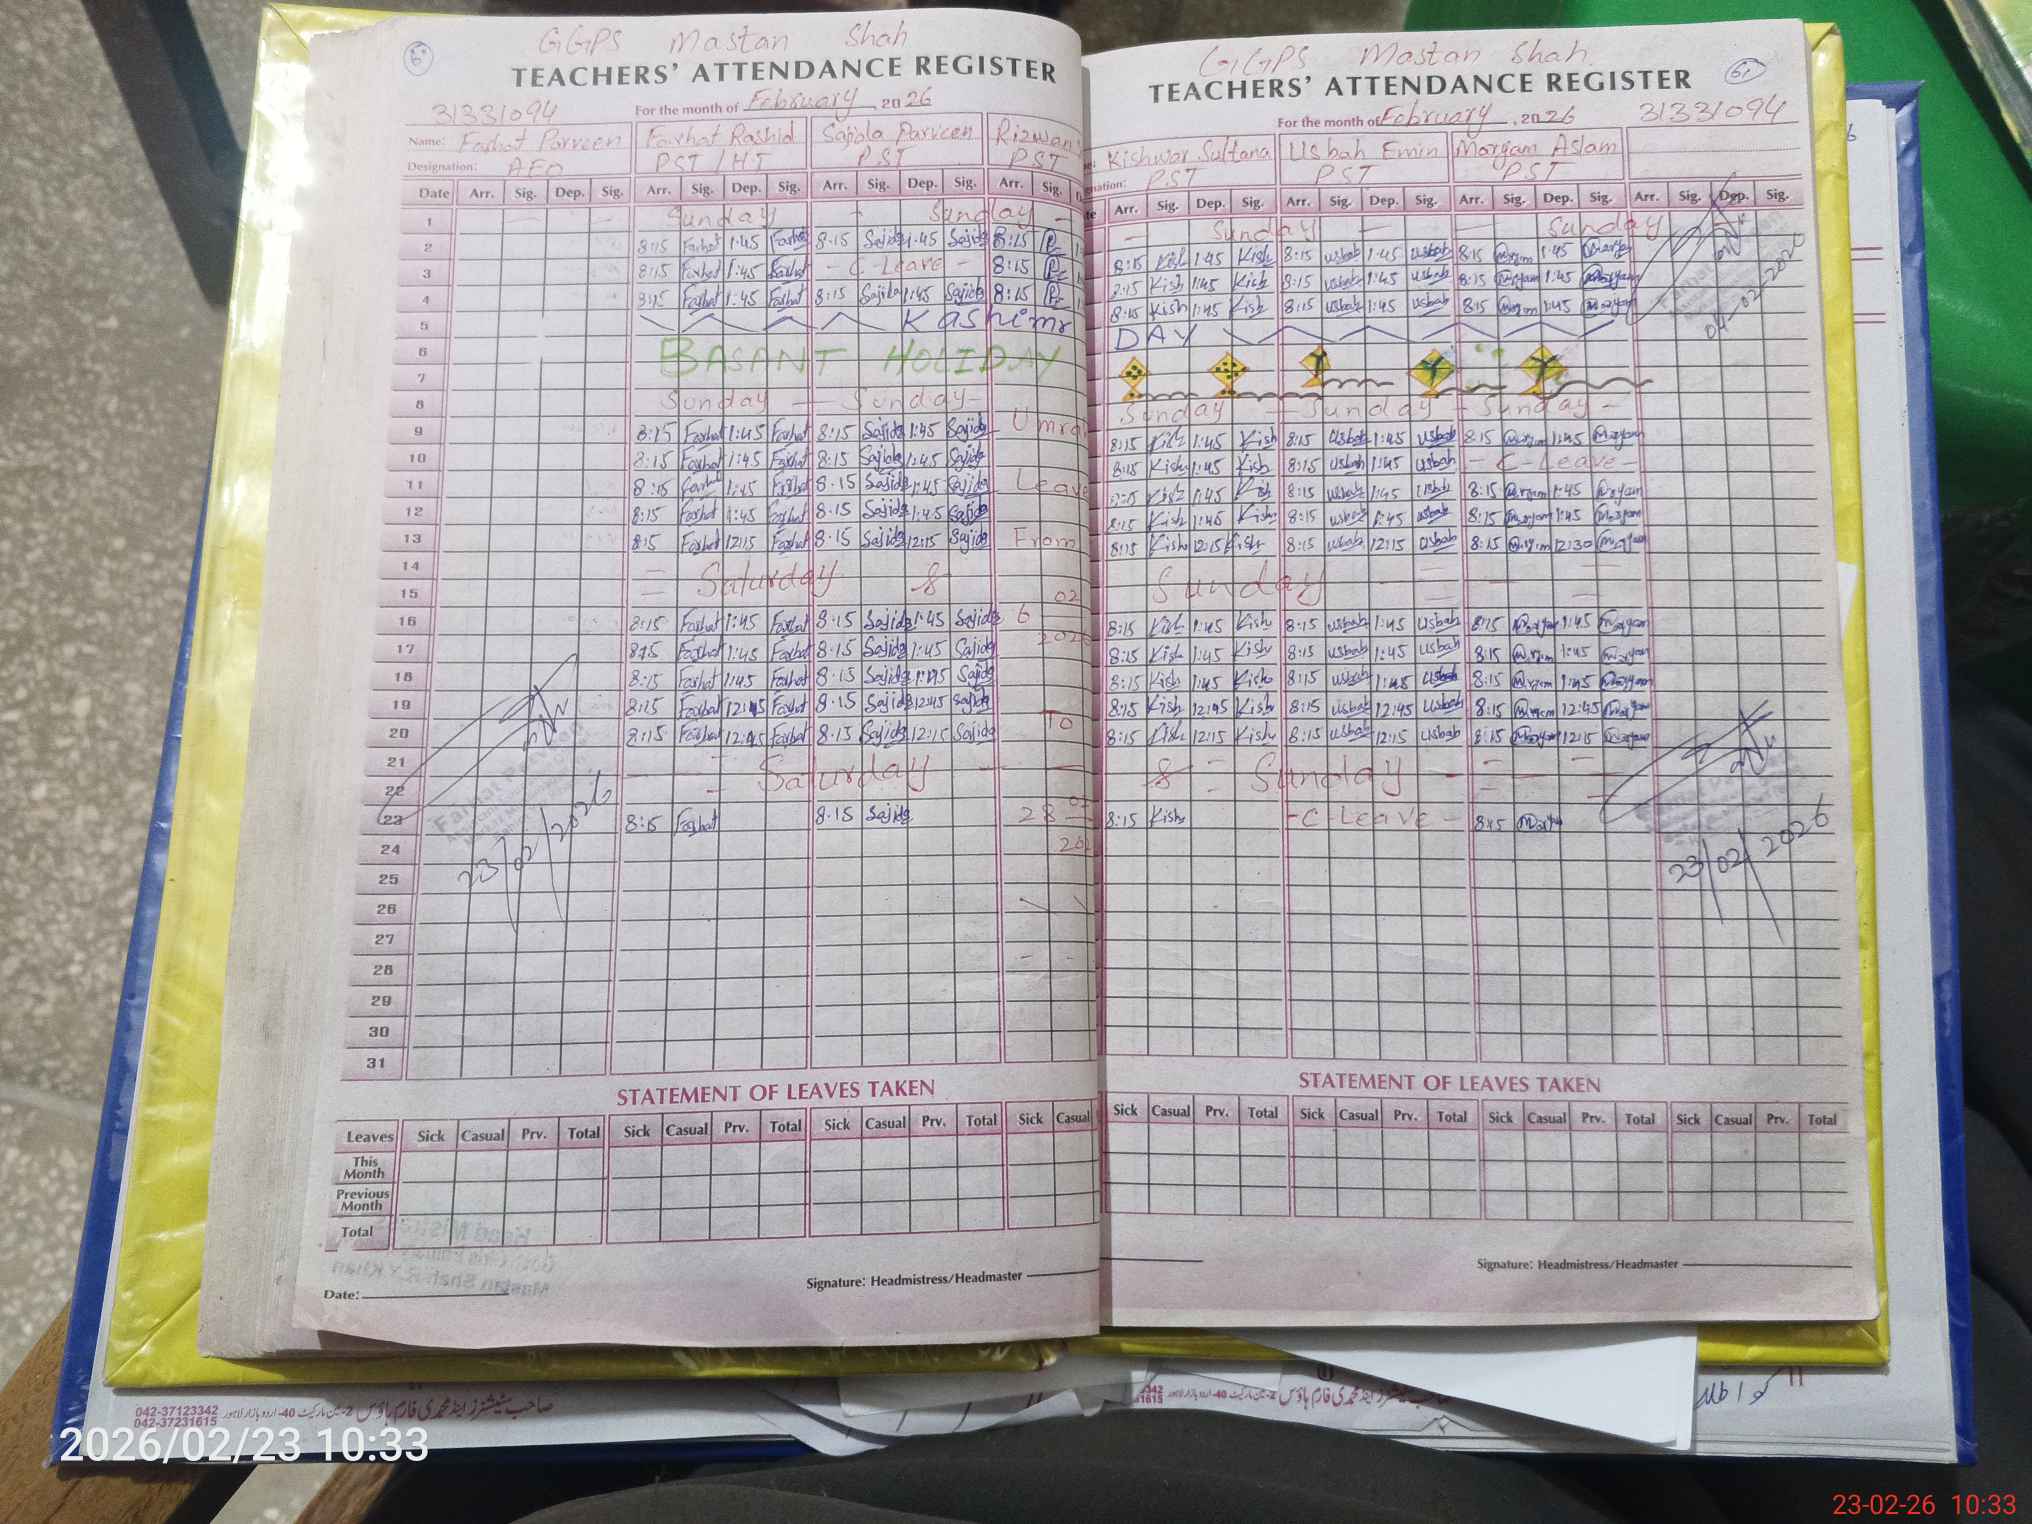 GGPS Mastan Shah
TEACHERS' ATTENDANCE REGISTER
31331094
For the month of February 2026
Name: Farhat Parveen Farhat Rashid Sajida Parveen Rizwan
Designation: AEO PST/HT PST PST
Date Arr. Sig. Dep. Sig. Arr. Sig. Dep. Sig. Arr. Sig. Dep. Sig. Arr. Sig.
1 Sunday Sunday
2 8:15 Farhat 1:45 Farhat 8:15 Sajida 1:45 Sajida 8:15
3 8:15 Farhat 1:45 Farhat C-Leave 8:15
4 8:15 Farhat 1:45 Farhat 8:15 Sajida 1:45 Sajida 8:15
5 Kashimr
6 BASANT HOLIDAY
7
8 Sunday Sunday
9 8:15 Farhat 1:45 Farhat 8:15 Sajida 1:45 Sajida Umra
10 8:15 Farhat 1:45 Farhat 8:15 Sajida 1:45 Sajida
11 8:15 Farhat 1:45 Farhat 8:15 Sajida 1:45 Sajida Leave
12 8:15 Farhat 1:45 Farhat 8:15 Sajida 1:45 Sajida
13 8:15 Farhat 12:15 Farhat 8:15 Sajida 12:15 Sajida From
14 Saturday &
15 02
16 8:15 Farhat 1:45 Farhat 8:15 Sajida 1:45 Sajida 6
17 8:15 Farhat 1:45 Farhat 8:15 Sajida 1:45 Sajida
18 8:15 Farhat 1:45 Farhat 8:15 Sajida 1:45 Sajida
19 8:15 Farhat 12:45 Farhat 8:15 Sajida 12:45 Sajida To
20 8:15 Farhat 12:15 Farhat 8:15 Sajida 12:15 Sajida
21 Saturday
22
23 8:15 Farhat 8:15 Sajida 28
24
25
26
27
28
29
30
31
Farhat Parveen
23/02/2026
STATEMENT OF LEAVES TAKEN
Leaves Sick Casual Prv. Total Sick Casual Prv. Total Sick Casual Prv. Total Sick Casual
This Month
Previous Month
Total
Date:
Signature: Headmistress/Headmaster
GGPS Mastan Shah
TEACHERS' ATTENDANCE REGISTER
61
For the month of February, 2026 31331094
Kishwar Sultana Usbah Emin Maryam Aslam
PST PST PST
Arr. Sig. Dep. Sig. Arr. Sig. Dep. Sig. Arr. Sig. Dep. Sig. Arr. Sig. Dep. Sig.
Sunday Sunday
8:15 Kish 1:45 Kish 8:15 Usbah 1:45 Usbah 8:15 Maryam 1:45 Maryam
8:15 Kish 1:45 Kish 8:15 Usbah 1:45 Usbah 8:15 Maryam 1:45 Maryam
8:15 Kish 1:45 Kish 8:15 Usbah 1:45 Usbah 8:15 Maryam 1:45 Maryam
04-02-2026
DAY
Sunday Sunday Sunday
8:15 Kish 1:45 Kish 8:15 Usbah 1:45 Usbah 8:15 Maryam 1:45 Maryam
8:15 Kish 1:45 Kish 8:15 Usbah 1:45 Usbah C-Leave
8:15 Kish 1:45 Kish 8:15 Usbah 1:45 Usbah 8:15 Maryam 1:45 Maryam
8:15 Kish 1:45 Kish 8:15 Usbah 1:45 Usbah 8:15 Maryam 1:45 Maryam
8:15 Kish 12:15 Kish 8:15 Usbah 12:15 Usbah 8:15 Maryam 12:30 Maryam
Sunday
8:15 Kish 1:45 Kish 8:15 Usbah 1:45 Usbah 8:15 Maryam 1:45 Maryam
8:15 Kish 1:45 Kish 8:15 Usbah 1:45 Usbah 8:15 Maryam 1:45 Maryam
8:15 Kish 1:45 Kish 8:15 Usbah 1:45 Usbah 8:15 Maryam 1:45 Maryam
8:15 Kish 12:45 Kish 8:15 Usbah 12:45 Usbah 8:15 Maryam 12:45 Maryam
8:15 Kish 12:15 Kish 8:15 Usbah 12:15 Usbah 8:15 Maryam 12:15 Maryam
& Sunday
8:15 Kish C-Leave 8:15 Mary
23/02/2026
STATEMENT OF LEAVES TAKEN
Sick Casual Prv. Total Sick Casual Prv. Total Sick Casual Prv. Total Sick Casual Prv. Total
Signature: Headmistress/Headmaster
042-37123342
042-37231615
2026/02/23 10:33
23-02-26 10:33